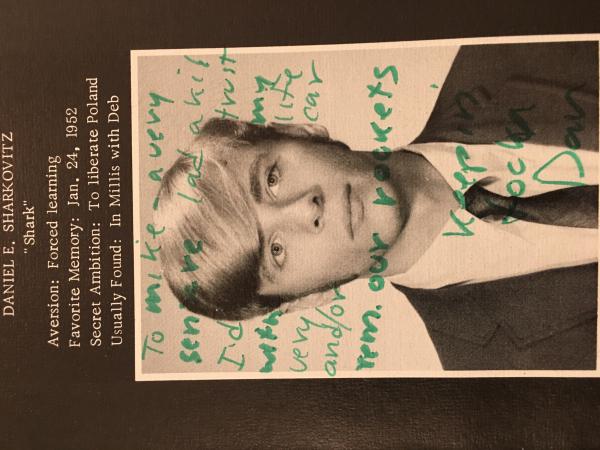 DANIEL E. SHARKOVITZ
"Shark"
Aversion: Forced learning
Favorite Memory: Jan. 24, 1952
Secret Ambition: To liberate Poland
Usually Found: In Millis with Deb
To mike - a very
I'd trust
with my
very life
and/or car
rem. our rockets
keep in
Dan